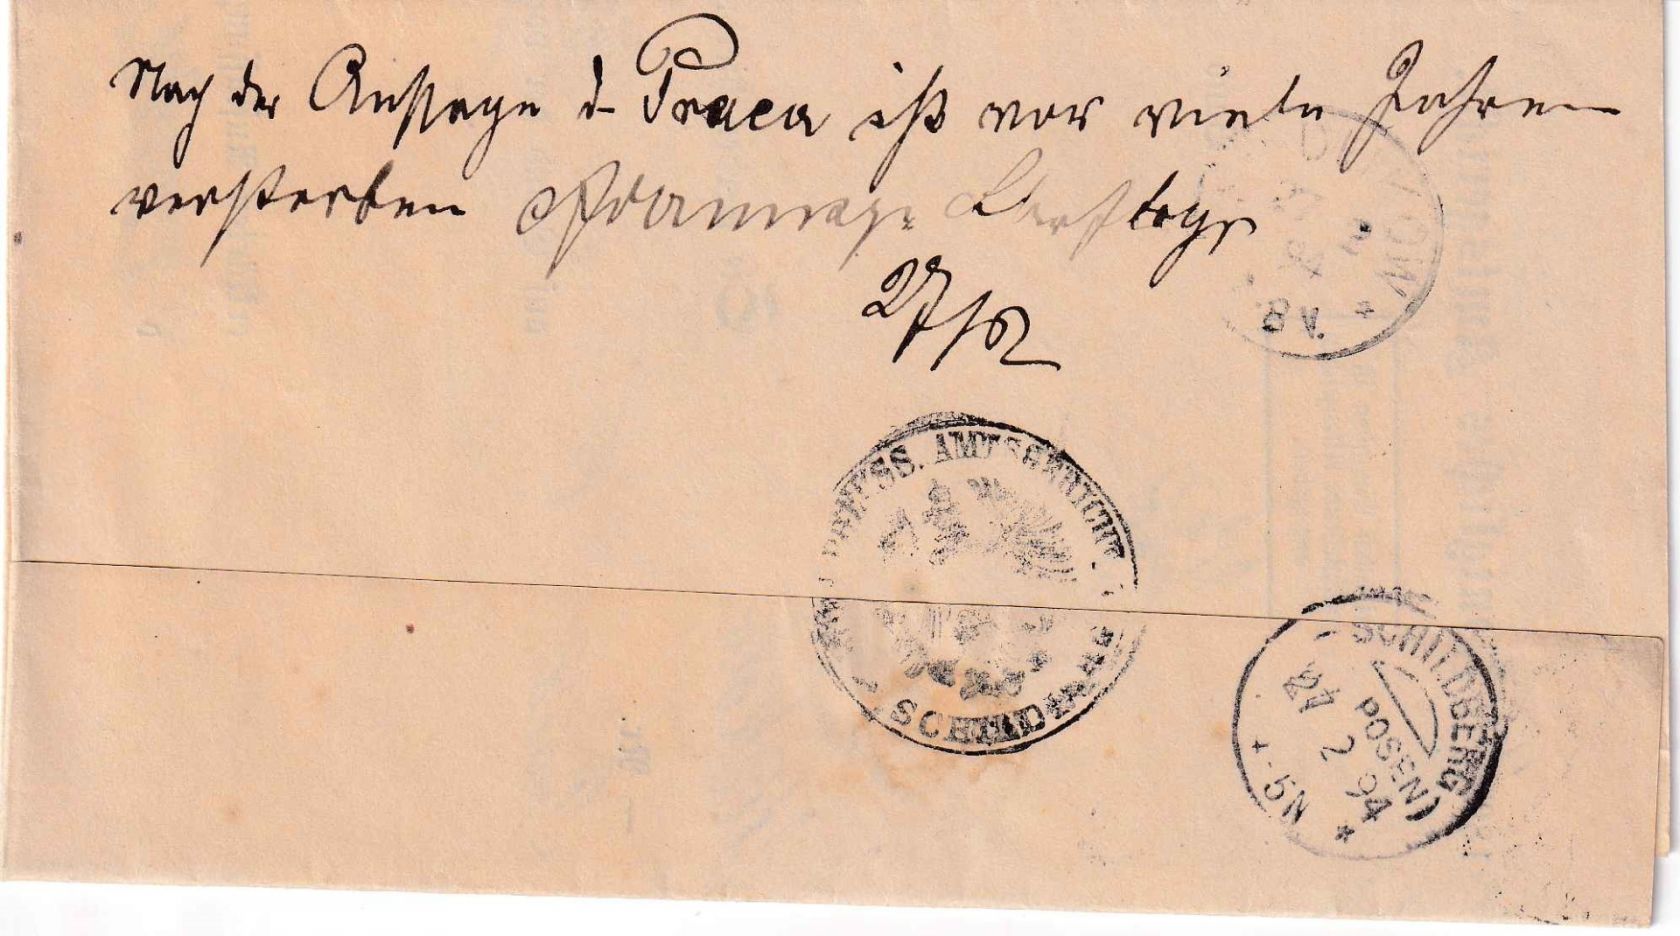 Nach der Aussage d. Praca ist vor viele Jahren
verstorben
27/2
PREUSS. AMTSGERICHT
SCHILDBERG
8 V.
SCHILDBERG
(POSEN)
27 2 94
5-N